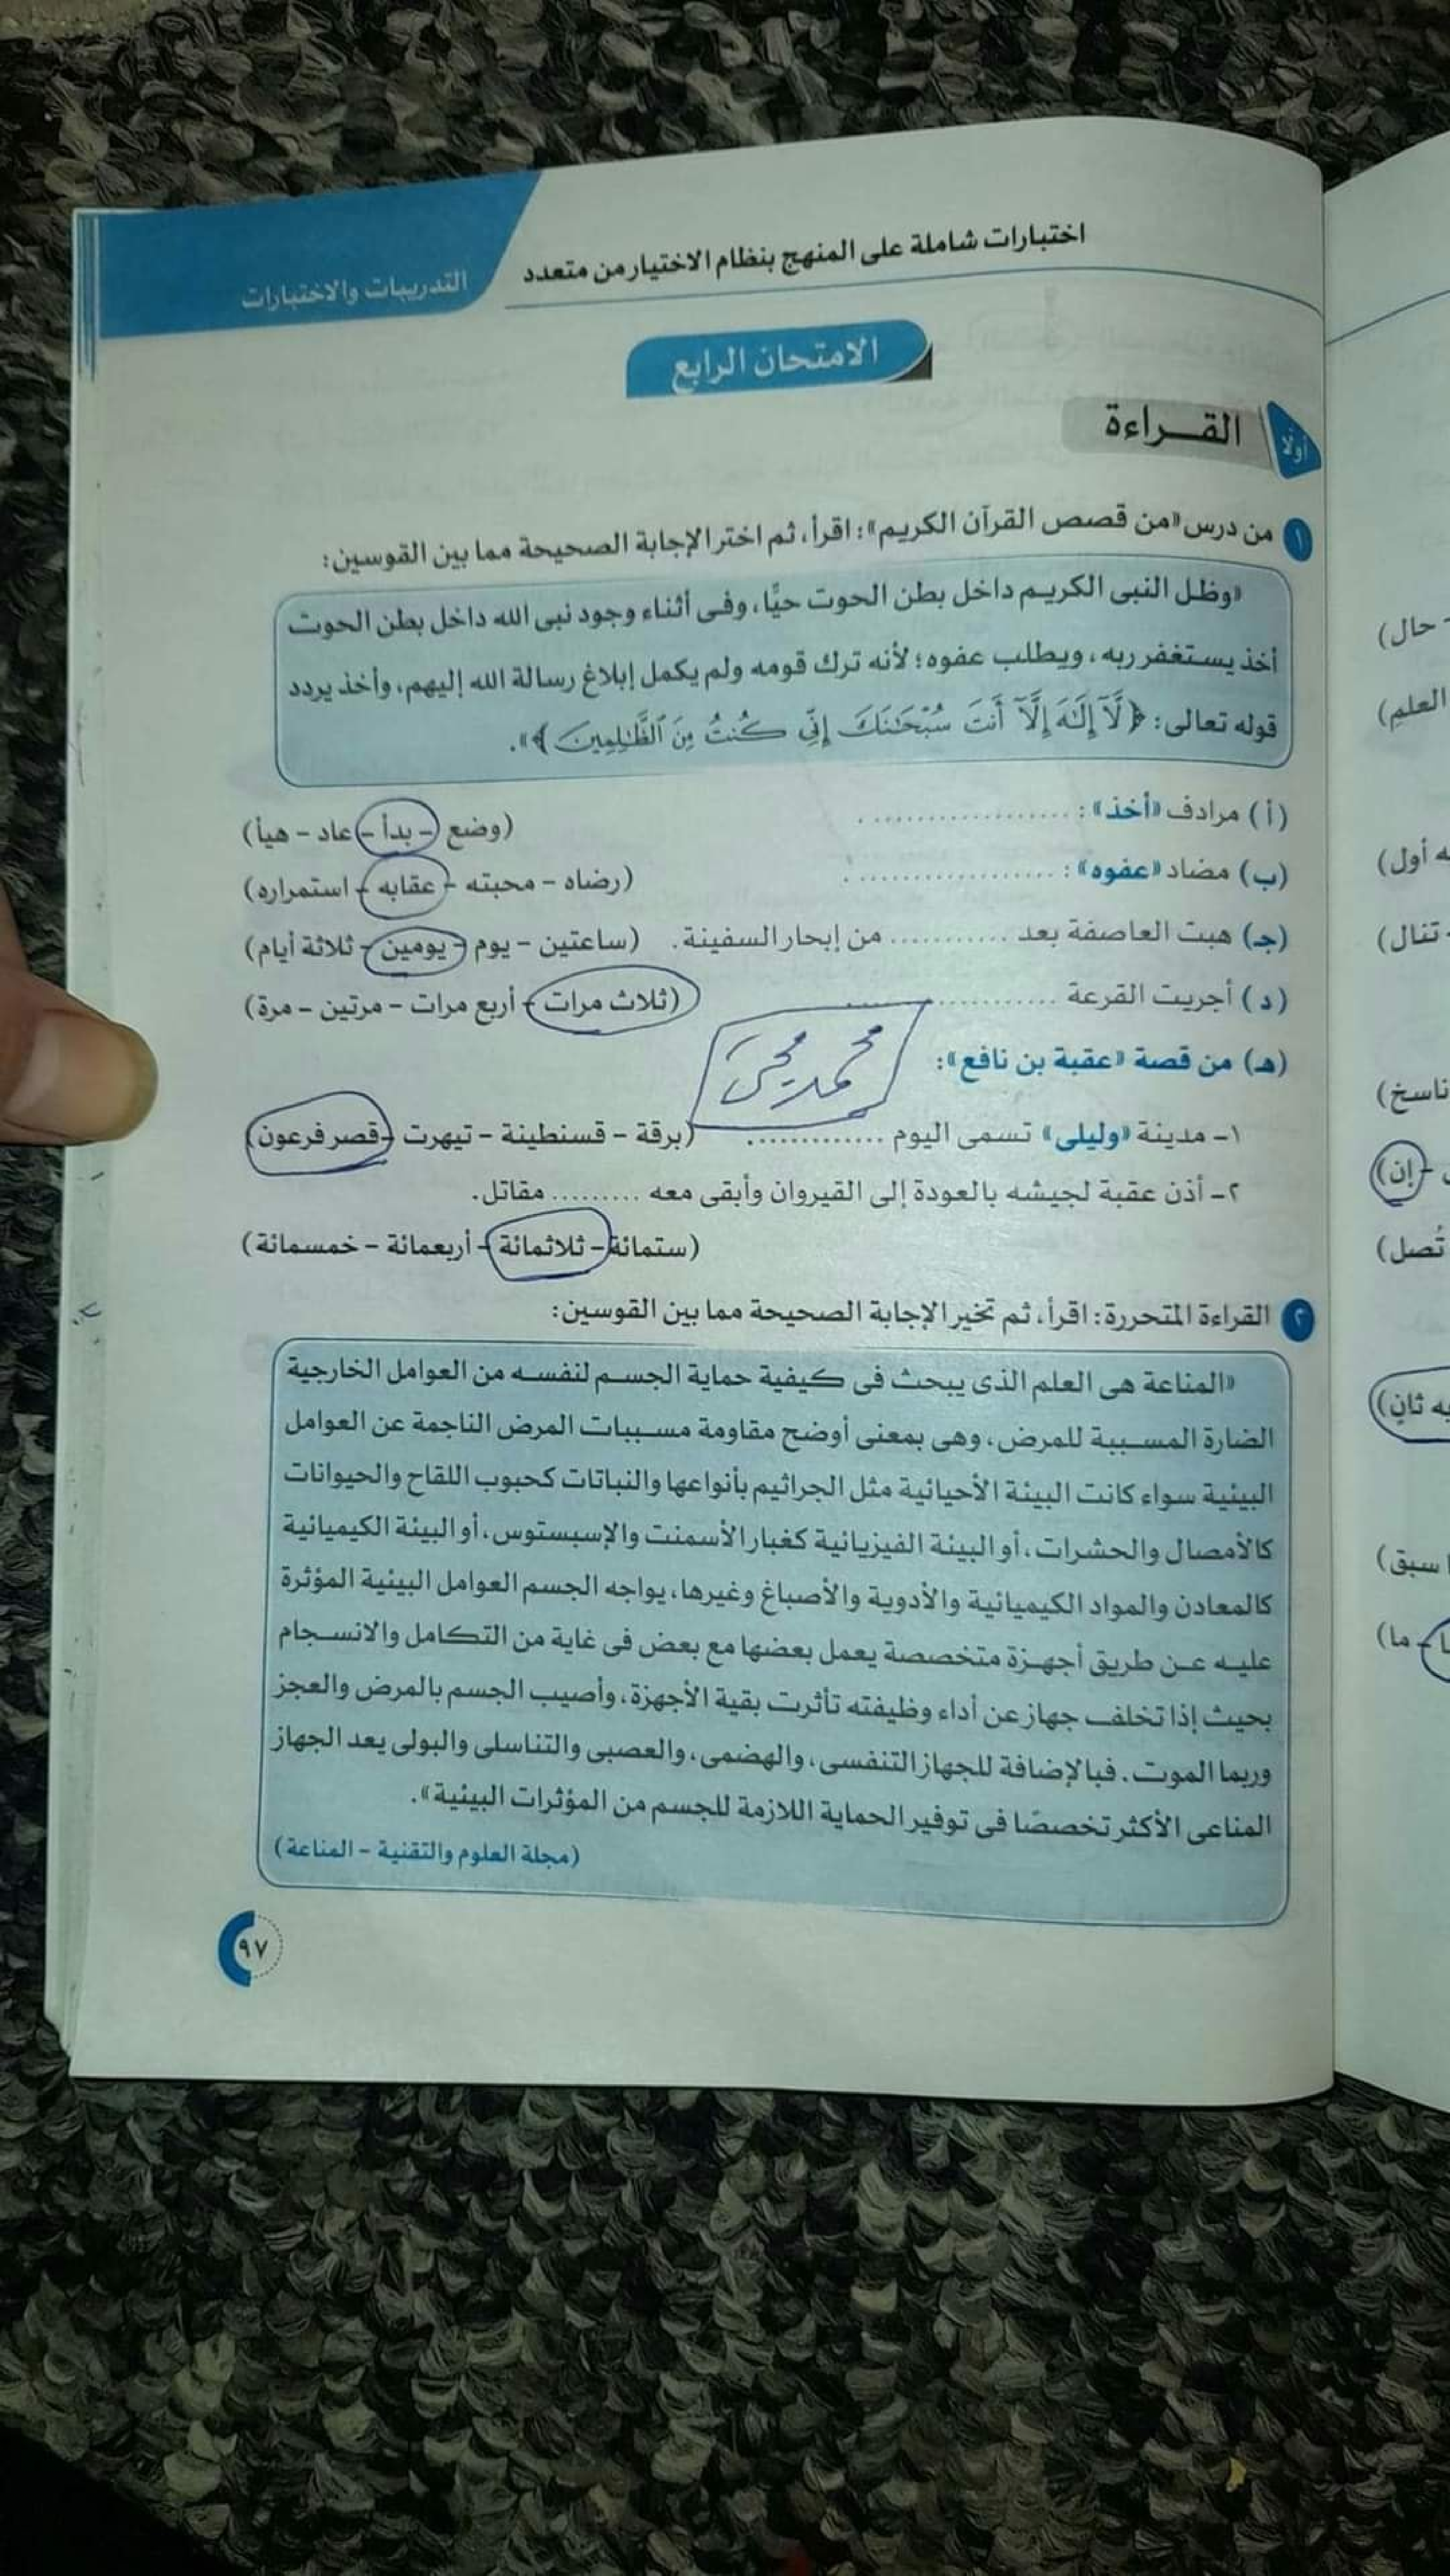 اختبارات شاملة على المنهج بنظام الاختيار من متعدد
التدريبات والاختبارات
الامتحان الرابع
أولا
القــراءة
١ من درس «من قصص القرآن الكريم»: اقرأ، ثم اختر الإجابة الصحيحة مما بين القوسين:
«وظل النبى الكريم داخل بطن الحوت حيًّا، وفى أثناء وجود نبى الله داخل بطن الحوت
أخذ يستغفر ربه، ويطلب عفوه؛ لأنه ترك قومه ولم يكمل إبلاغ رسالة الله إليهم، وأخذ يردد
قوله تعالى: ﴿لَّآ إِلَٰهَ إِلَّآ أَنتَ سُبْحَٰنَكَ إِنِّى كُنتُ مِنَ ٱلظَّٰلِمِينَ﴾».
(أ) مرادف «أخذ»: .................... . (وضع - بدأ - عاد - هيأ)
(ب) مضاد «عفوه»: .................... . (رضاه - محبته - عقابه - استمراره)
(جـ) هبت العاصفة بعد ........... من إبحار السفينة. (ساعتين - يوم - يومين - ثلاثة أيام)
(د) أجريت القرعة .................... (ثلاث مرات - أربع مرات - مرتين - مرة)
(هـ) من قصة «عقبة بن نافع»:
محمد محيى
١- مدينة «وليلى» تسمى اليوم ............. (برقة - قسنطينة - تيهرت - قصر فرعون)
٢- أذن عقبة لجيشه بالعودة إلى القيروان وأبقى معه ......... مقاتل.
(ستمائة - ثلاثمائة - أربعمائة - خمسمائة)
٢ القراءة المتحررة: اقرأ، ثم تخير الإجابة الصحيحة مما بين القوسين:
«المناعة هى العلم الذى يبحث فى كيفية حماية الجسم لنفسه من العوامل الخارجية
الضارة المسببة للمرض، وهى بمعنى أوضح مقاومة مسببات المرض الناجمة عن العوامل
البيئية سواء كانت البيئة الأحيائية مثل الجراثيم بأنواعها والنباتات كحبوب اللقاح والحيوانات
كالأمصال والحشرات، أو البيئة الفيزيائية كغبار الأسمنت والإسبستوس، أو البيئة الكيميائية
كالمعادن والمواد الكيميائية والأدوية والأصباغ وغيرها، يواجه الجسم العوامل البيئية المؤثرة
عليه عن طريق أجهزة متخصصة يعمل بعضها مع بعض فى غاية من التكامل والانسجام
بحيث إذا تخلف جهاز عن أداء وظيفته تأثرت بقية الأجهزة، وأصيب الجسم بالمرض والعجز
وربما الموت. فبالإضافة للجهاز التنفسى، والهضمى، والعصبى والتناسلى والبولى يعد الجهاز
المناعى الأكثر تخصصًا فى توفير الحماية اللازمة للجسم من المؤثرات البيئية».
(مجلة العلوم والتقنية - المناعة)
٩٧
- حال)
العلم)
ه أول)
- تنال)
ناسخ)
- إن)
تُصل)
به ثانٍ)
سبق)
- ما)